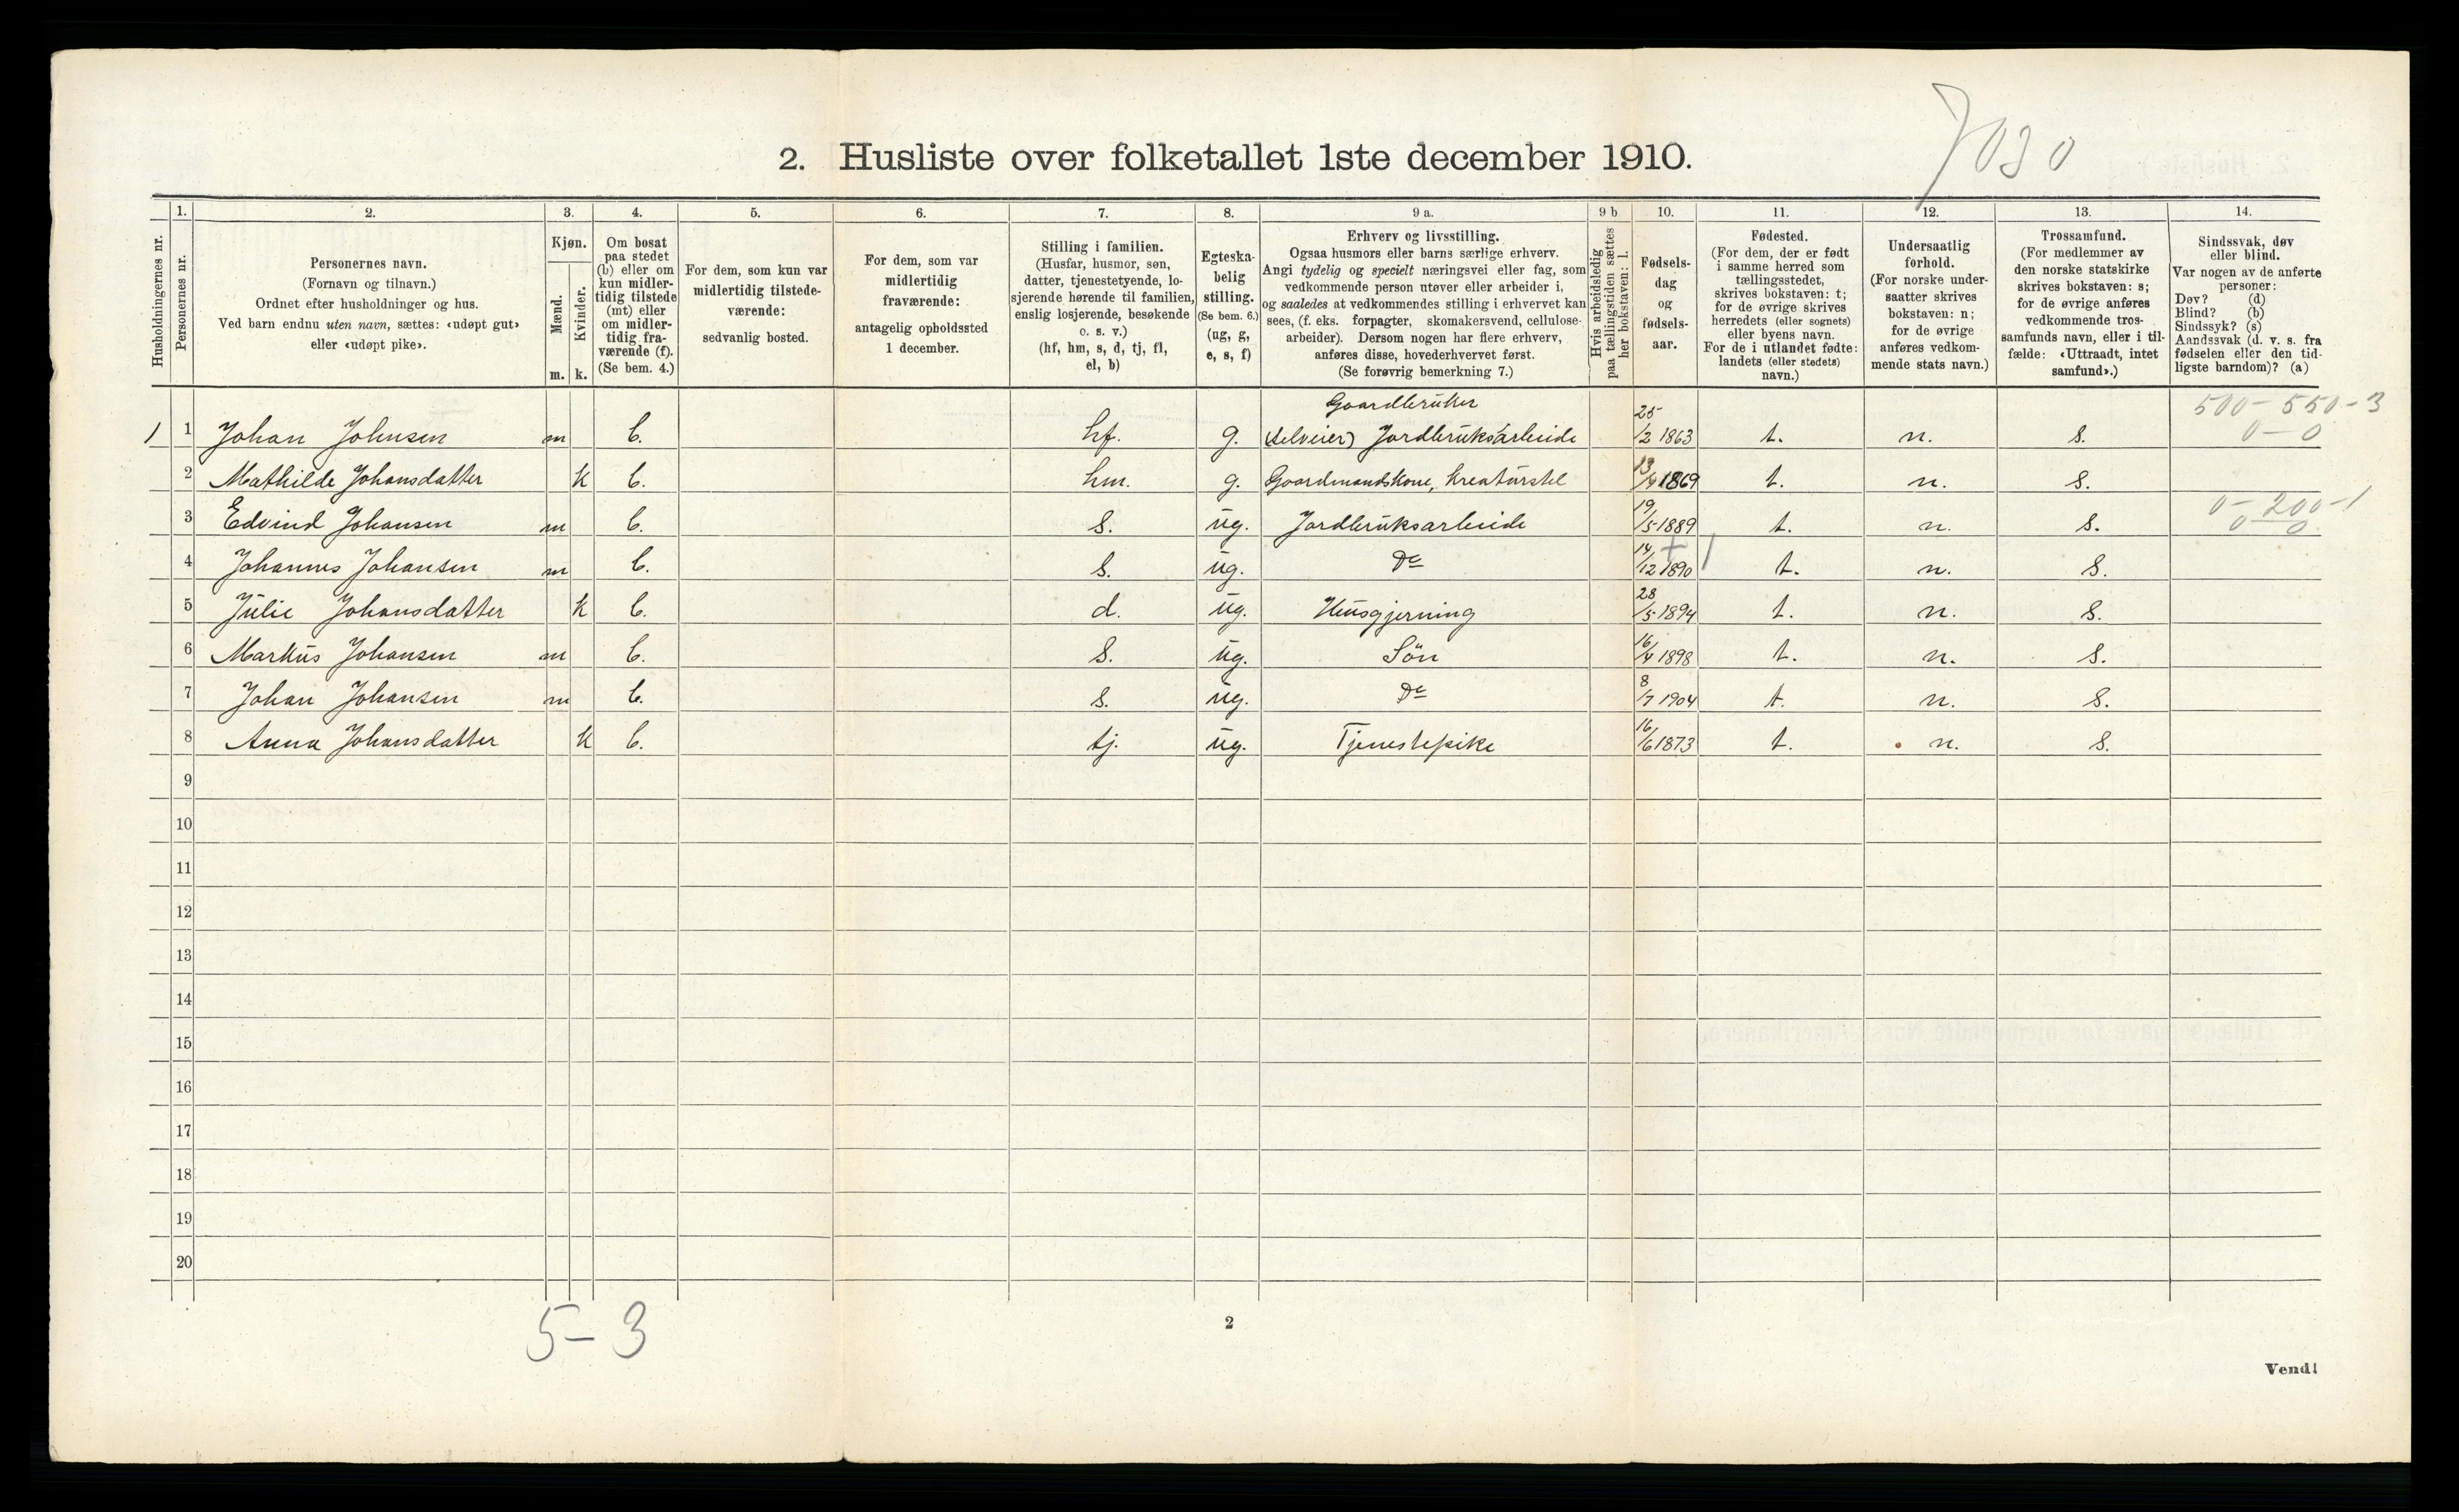 7030
2. Husliste over folketallet 1ste december 1910.
Husholdningernes nr.
1.
Personernes nr.
2.
Personernes navn.
(Fornavn og tilnavn.)
Ordnet efter husholdninger og hus.
Ved barn endnu uten navn, sættes: «udøpt gut»
eller «udøpt pike».
3.
Kjøn.
Mænd.
Kvinder.
m. k.
4.
Om bosat
paa stedet
(b) eller om
kun midler-
tidig tilstede
(mt) eller
om midler-
tidig fra-
værende (f).
(Se bem. 4.)
5.
For dem, som kun var
midlertidig tilstede-
værende:
sedvanlig bosted.
6.
For dem, som var
midlertidig
fraværende:
antagelig opholdssted
1 december.
7.
Stilling i familien.
(Husfar, husmor, søn,
datter, tjenestetyende, lo-
sjerende hørende til familien,
enslig losjerende, besøkende
o. s. v.)
(hf, hm, s, d, tj, fl,
el, b)
8.
Egteska-
belig
stilling.
(Se bem. 6.)
(ug, g,
e, s, f)
9 a.
Erhverv og livsstilling.
Ogsaa husmors eller barns særlige erhverv.
Angi tydelig og specielt næringsvei eller fag, som
vedkommende person utøver eller arbeider i,
og saaledes at vedkommendes stilling i erhvervet kan
sees, (f. eks. forpagter, skomakersvend, cellulose-
arbeider). Dersom nogen har flere erhverv,
anføres disse, hovederhvervet først.
(Se forøvrig bemerkning 7.)
9 b
Hvis arbeidsledig
paa tællingstiden sættes
her bokstaven: l.
10.
Fødsels-
dag
og
fødsels-
aar.
11.
Fødested.
(For dem, der er født
i samme herred som
tællingsstedet,
skrives bokstaven: t;
for de øvrige skrives
herredets (eller sognets)
eller byens navn.
For de i utlandet fødte:
landets (eller stedets)
navn.)
12.
Undersaatlig
forhold.
(For norske under-
saatter skrives
bokstaven: n;
for de øvrige
anføres vedkom-
mende stats navn.)
13.
Trossamfund.
(For medlemmer av
den norske statskirke
skrives bokstaven: s;
for de øvrige anføres
vedkommende tros-
samfunds navn, eller i til-
fælde: «Uttraadt, intet
samfund».)
14.
Sindssvak, døv
eller blind.
Var nogen av de anførte
personer:
Døv? (d)
Blind? (b)
Sindssyk? (s)
Aandssvak (d. v. s. fra
fødselen eller den tid-
ligste barndom)? (a)
Gaardbruker 500 - 550 - 3
1 1 Johan Johnsen m b. hf. g. (selveier) Jordbruksarbeide 25/2 1863 t. n. s. 0 - 0
2 Mathilde Johansdatter k b. hm. g. Gaardmandskone, kreaturstel 13/4 1869 t. n. s.
3 Edvind Johansen m b. s. ug. Jordbruksarbeide 19/5 1889 t. n. s. 0 - 200 - 1
0 - 0
4 Johannes Johansen m b. s. ug. Do 14/12 1890 + 1 t. n. s.
5 Julie Johansdatter k b. d. ug. Husgjerning 28/5 1894 t. n. s.
6 Markus Johansen m b. s. ug. Søn 16/4 1898 t. n. s.
7 Johan Johansen m b. s. ug. Do 8/7 1904 t. n. s.
8 Anna Johansdatter k b. tj. ug. Tjenestepike 16/6 1873 t. n. s.
9
10
11
12
13
14
15
16
17
18
19
20
5 - 3
2
Vend!